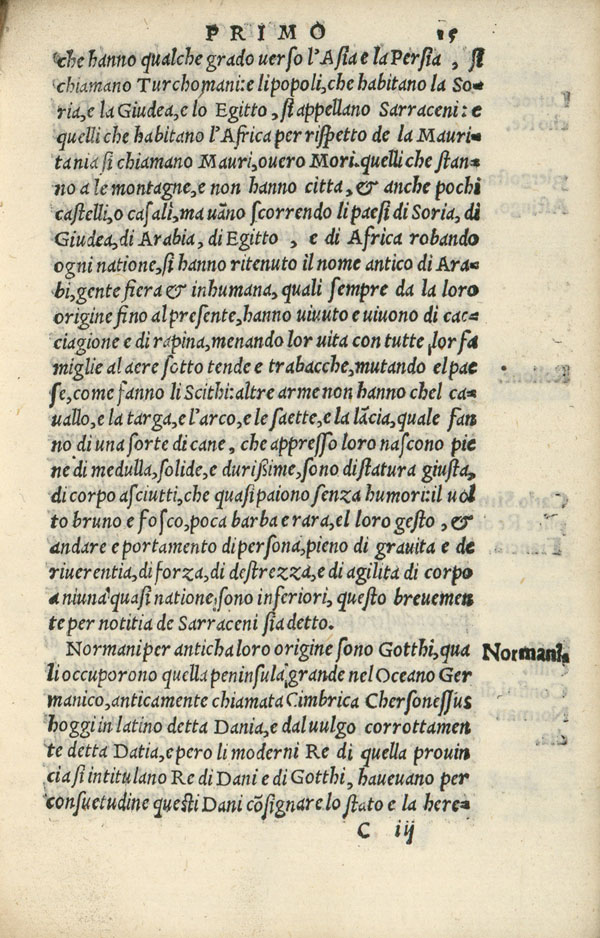 PRIMO 15
che hanno qualche grado uerso l'Asia e la Persia, si
chiamano Turchomani: e li popoli, che habitano la So-
ria, e la Giudea, e lo Egitto, si appellano Sarraceni: e
quelli che habitano l'Africa per rispetto de la Mauri-
tania si chiamano Mauri, ouero Mori. quelli che stan-
no a le montagne, e non hanno citta, & anche pochi
castelli, o casali, ma uāno scorrendo li paesi di Soria, di
Giudea, di Arabia, di Egitto, e di Africa robando
ogni natione, si hanno ritenuto il nome antico di Ara-
bi, gente fiera & inhumana, quali sempre da la loro
origine fino al presente, hanno uiuuto e uiuono di cac-
ciagione e di rapina, menando lor uita con tutte lor fa
miglie al aere sotto tende e trabacche, mutando el pae
se, come fanno li Scithi: altre arme non hanno chel ca-
uallo, e la targa, e l'arco, e le saette, e la lācia, quale fan
no di una sorte di cane, che appresso loro nascono pie
ne di medulla, solide, e durissime, sono di statura giusta,
di corpo asciutti, che quasi paiono senza humori: il uol
to bruno e fosco, poca barba e rara, el loro gesto, &
andare e portamento di persona, pieno di grauita e de
riuerentia, di forza, di destrezza, e di agilita di corpo
a niuna quasi natione, sono inferiori, questo breuemen
te per notitia de Sarraceni sia detto.
Normani per anticha loro origine sono Gotthi, qua
Normani.
li occuporono quella peninsula grande nel Oceano Ger
manico, anticamente chiamata Cimbrica Chersonessus
hoggi in latino detta Dania, e dal uulgo corrottamen
te detta Datia, e pero li moderni Re di quella prouin
cia si intitulano Re di Dani e di Gotthi, haueuano per
consuetudine questi Dani cōsignare lo stato e la here-
C iij